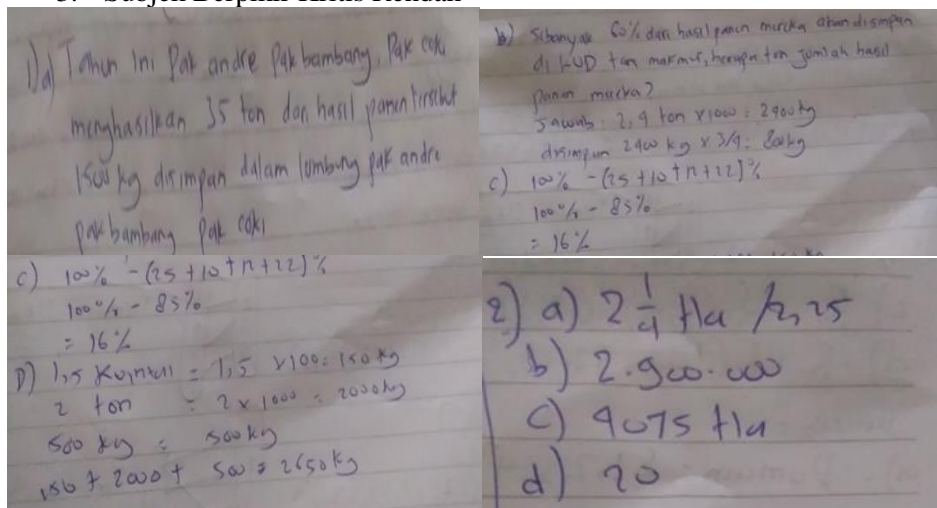 1) a) Tahun ini Pak andre Pak bambang, Pak coki
menghasilkan 35 ton dari hasil panen tersebut
1500 kg disimpan dalam lumbung pak andre
pak bambang Pak coki
b) Sebanyak 60% dari hasil panen mereka akan disimpan
di KUD tan makmur, berapa ton jumlah hasil
panen mereka?
Jawab : 2,4 ton x 1000 = 2400 kg
disimpan 2400 kg x 3/4 :
c) 100% - (25 + 10 + 12 + 22)%
100% - 85%
= 16%
c) 100% - (25 + 10 + 12 + 22)%
100% - 85%
= 16%
D) 1,5 Kuintal = 1,5 x 100 = 150 kg
2 ton = 2 x 1000 = 2000 kg
500 kg = 500 kg
150 + 2000 + 500 = 2650 kg
2) a) 2 1/4 Ha / 2,25
b) 2.900.000
c) 4075 Ha
d) 20